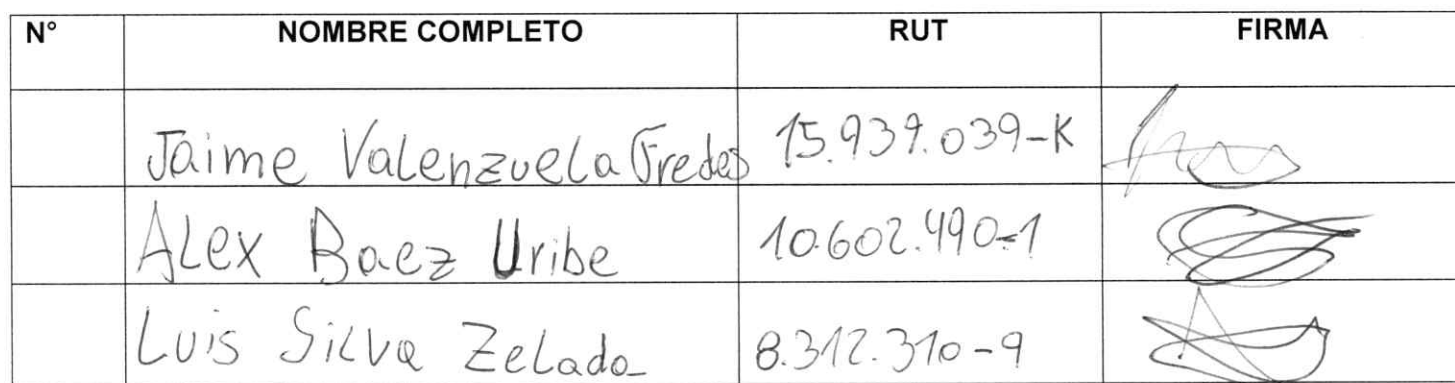 N° NOMBRE COMPLETO RUT FIRMA
Jaime Valenzuela Fredes 15.939.039-K
ALex Baez Uribe 10.602.490-1
Luis Silva Zelada 8.312.310-9